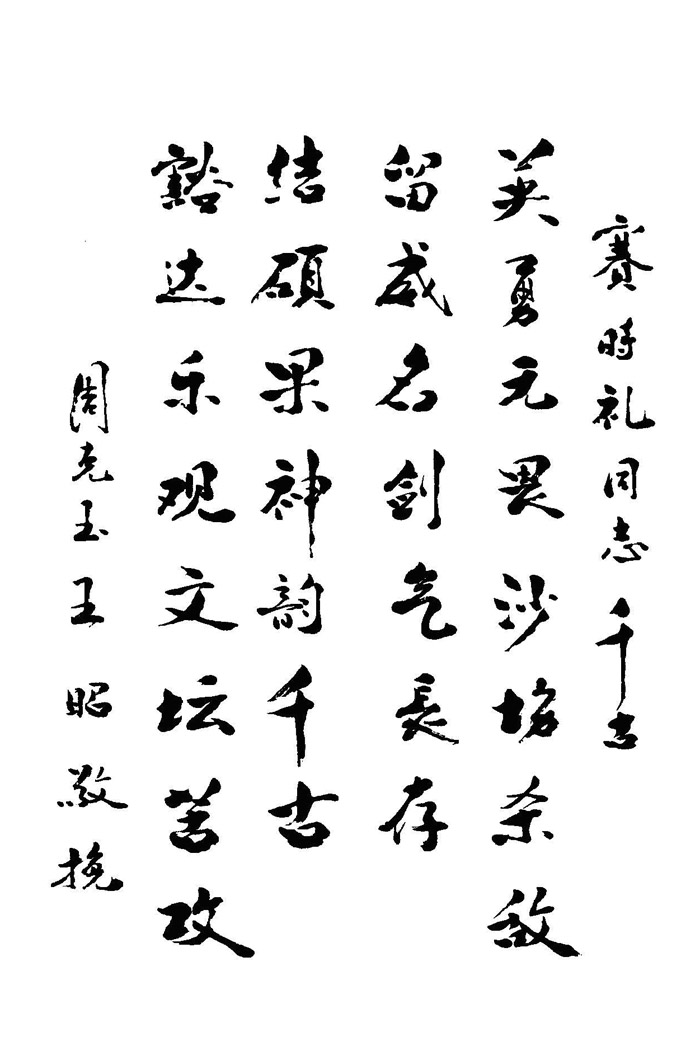 賽時礼同志千古
英勇无畏沙場杀敌
留威名剑气長存
豁达乐观文坛苦攻
结硕果神韵千古
周克玉王昭敬挽